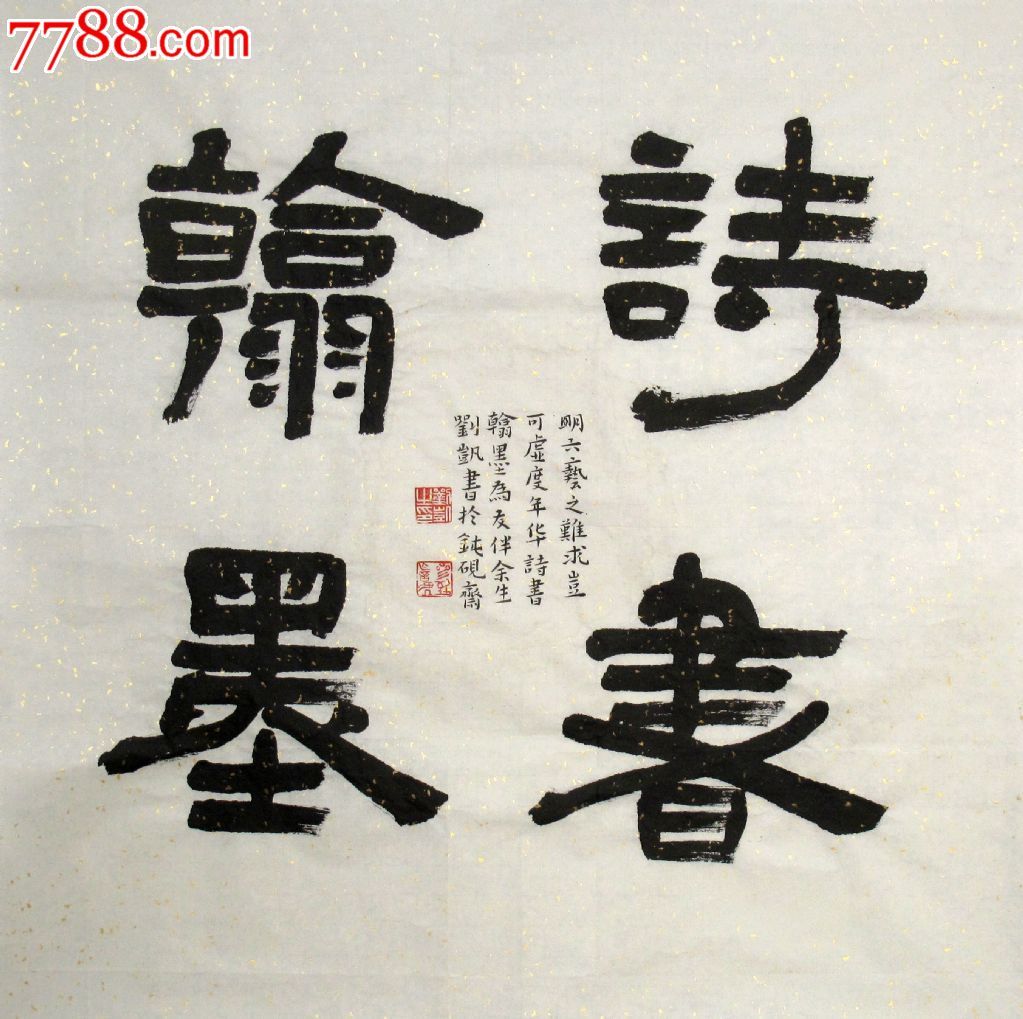 7788.com
詩書
翰墨
明六藝之難求豈
可虛度年华詩書
翰墨為友伴余生
劉凱書於鈍硯齋
劉凱之印